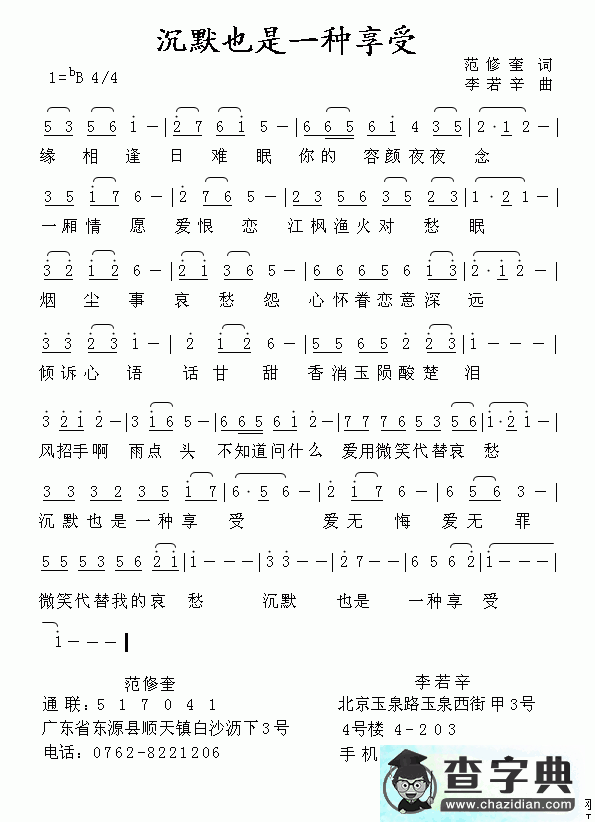 沉默也是一种享受
1=ᵇB 4/4
范修奎 词
李若辛 曲
5 3 5 6 i - | 2 7 6 i 5 - | 6 6 5 6 i 4 3 5 | 2 · 1 2 - |
缘相逢日难眠你的容颜夜夜念
3 5 i 7 6 - | 2 7 6 5 - | 3 3 2 3 5 2 3 | 1 · 2 1 - |
一厢情愿爱恨恋江枫渔火对愁眠
3 2 i 2 6 - | 2 i 3 6 5 - | 6 6 6 5 6 i 3 | 2 · i 2 - |
烟尘事哀愁怨心怀眷恋意深远
3 3 2 3 i - | 2 i 2 6 - | 5 5 6 5 2 3 2 | 1 - - - |
倾诉心语话甘甜香消玉陨酸楚泪
3 2 i 2 - | 3 i 6 5 - | 6 6 5 6 i 2 - | 7 7 7 6 5 3 5 6 | i · 2 i - |
风招手啊雨点头不知道问什么爱用微笑代替哀愁
3 3 3 2 3 5 | 6 · 5 6 - | 2 i 7 6 - | 6 5 6 3 - |
沉默也是一种享受爱无悔爱无罪
5 5 5 3 5 6 2 i | i - - - | 3 3 - - | 2 7 - - | 6 5 6 2 - | 3 - - - |
微笑代替我的哀愁沉默也是一种享受
i - - - ‖
范修奎
李若辛
通联：517041
北京玉泉路玉泉西街甲3号
广东省东源县顺天镇白沙沥下3号
4号楼 4-203
电话：0762-8221206
手机
查字典
www.chazidian.com